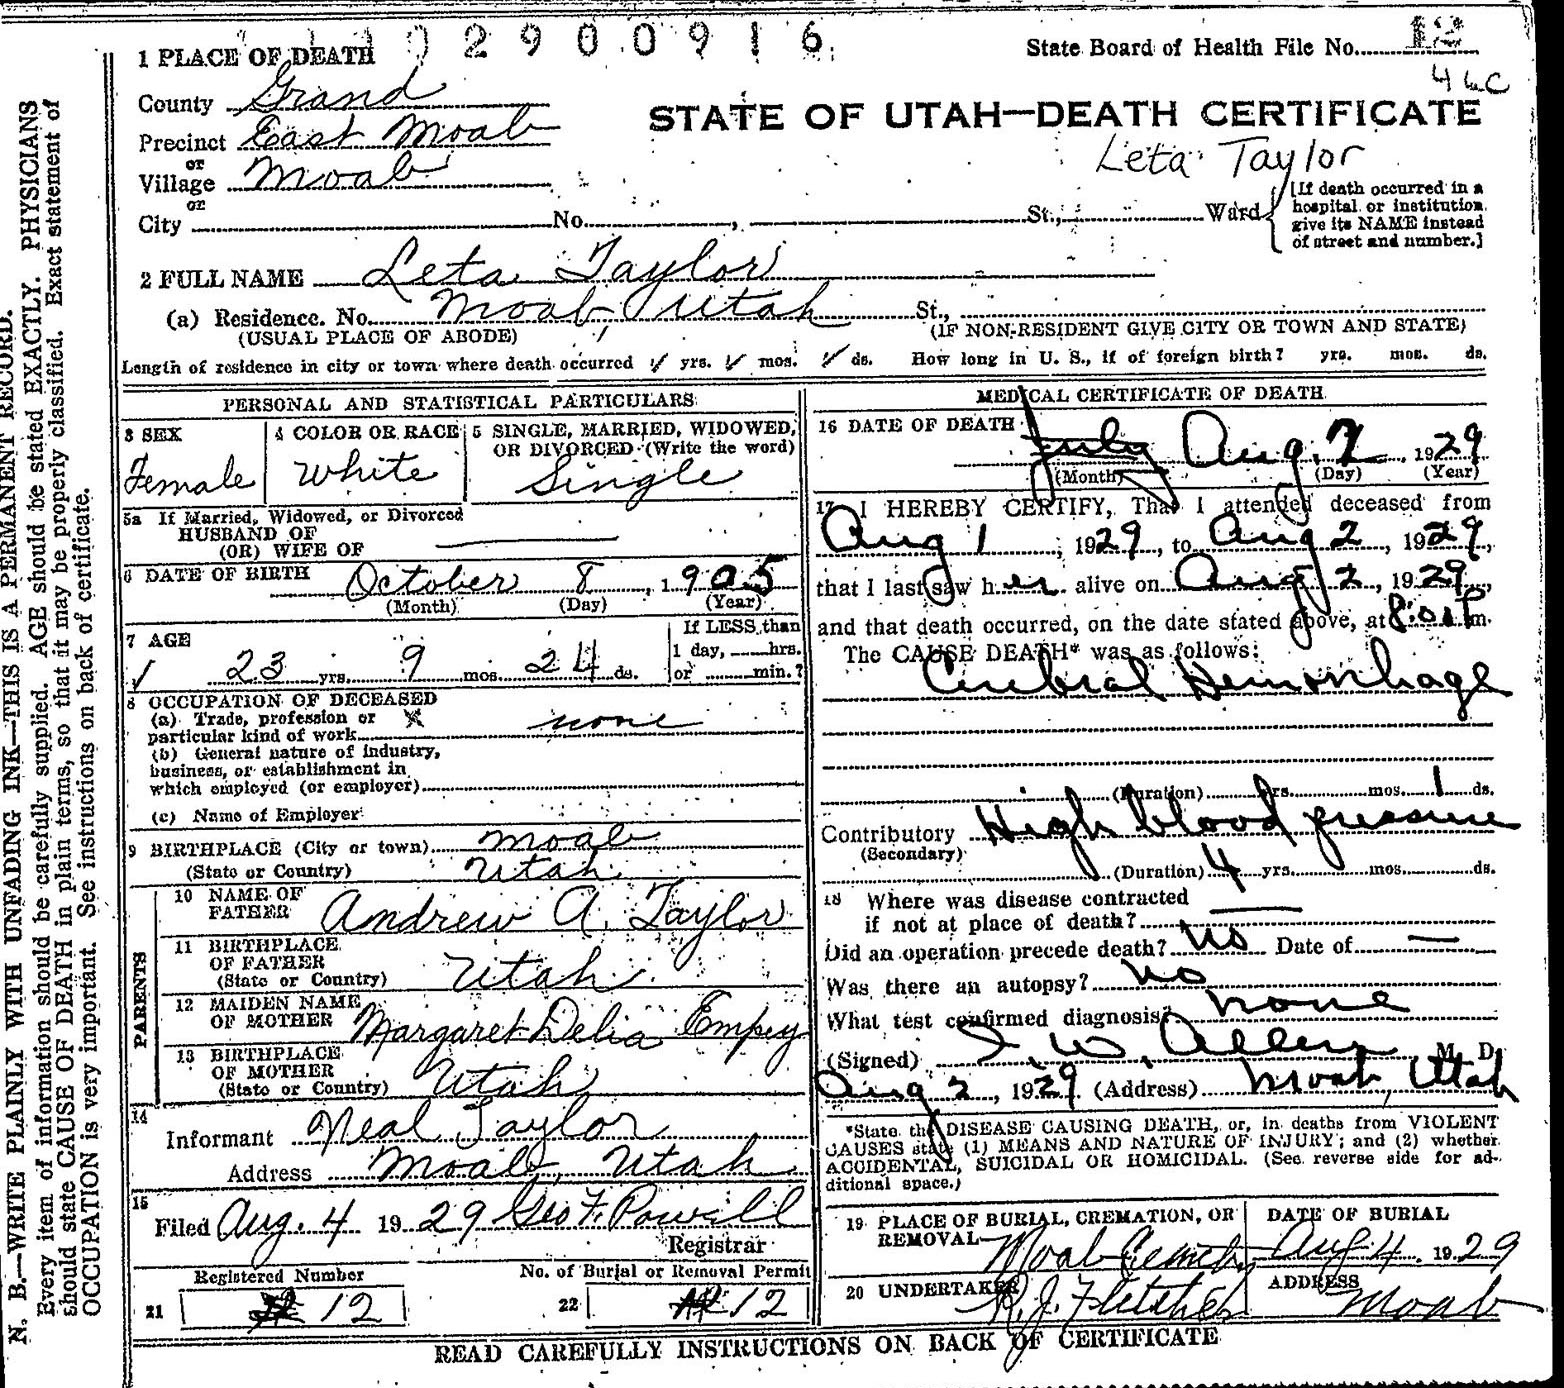 02900916
State Board of Health File No. 12
1 PLACE OF DEATH
County Grand
46C
STATE OF UTAH—DEATH CERTIFICATE
Precinct East Moab
or
Leta Taylor
Village Moab
or
City No. , St., Ward
[If death occurred in a
hospital or institution
give its NAME instead
of street and number.]
2 FULL NAME Leta Taylor
(a) Residence. No. Moab, Utah St.,
(USUAL PLACE OF ABODE) (IF NON-RESIDENT GIVE CITY OR TOWN AND STATE)
Length of residence in city or town where death occurred yrs. mos. ds. How long in U. S., if of foreign birth? yrs. mos. ds.
PERSONAL AND STATISTICAL PARTICULARS
3 SEX
Female
4 COLOR OR RACE
White
5 SINGLE, MARRIED, WIDOWED,
OR DIVORCED (Write the word)
Single
5a If Married, Widowed, or Divorced
HUSBAND OF
(OR) WIFE OF
6 DATE OF BIRTH October 8, 1905
(Month) (Day) (Year)
7 AGE
23 yrs. 9 mos. 24 ds.
If LESS than
1 day, hrs.
or min.?
8 OCCUPATION OF DECEASED
(a) Trade, profession or
particular kind of work none
(b) General nature of industry,
business, or establishment in
which employed (or employer)
(c) Name of Employer
9 BIRTHPLACE (City or town) Moab
(State or Country) Utah
PARENTS
10 NAME OF
FATHER Andrew A. Taylor
11 BIRTHPLACE
OF FATHER
(State or Country) Utah
12 MAIDEN NAME
OF MOTHER Margaret Delia Empey
13 BIRTHPLACE
OF MOTHER
(State or Country) Utah
14
Informant Neal Taylor
Address Moab, Utah
15
Filed Aug. 4 1929 Geo F. Powell
Registrar
Registered Number
21 12
No. of Burial or Removal Permit
22 12
MEDICAL CERTIFICATE OF DEATH
16 DATE OF DEATH
July Aug. 2, 1929
(Month) (Day) (Year)
17 I HEREBY CERTIFY, That I attended deceased from
Aug 1, 1929, to Aug 2, 1929,
that I last saw her alive on Aug 2, 1929,
and that death occurred, on the date stated above, at 8:01 P m.
The CAUSE DEATH* was as follows:
Cerebral Hemorrhage
(Duration) yrs. mos. 1 ds.
Contributory High blood pressure
(Secondary)
(Duration) 4 yrs. mos. ds.
18 Where was disease contracted
if not at place of death?
Did an operation precede death? no Date of —
Was there an autopsy? no
What test confirmed diagnosis? none
(Signed) I. W. Allen M. D.
Aug 2, 1929 (Address) Moab, Utah
*State the DISEASE CAUSING DEATH, or, in deaths from VIOLENT
CAUSES state (1) MEANS AND NATURE OF INJURY; and (2) whether
ACCIDENTAL, SUICIDAL OR HOMICIDAL. (See reverse side for ad-
ditional space.)
19 PLACE OF BURIAL, CREMATION, OR
REMOVAL Moab Cemeh
DATE OF BURIAL
Aug 4. 1929
20 UNDERTAKER R. J. Fletcher
ADDRESS Moab
READ CAREFULLY INSTRUCTIONS ON BACK OF CERTIFICATE
N. B.—WRITE PLAINLY WITH UNFADING INK—THIS IS A PERMANENT RECORD.
Every item of information should be carefully supplied. AGE should be stated EXACTLY. PHYSICIANS
should state CAUSE OF DEATH in plain terms, so that it may be properly classified. Exact statement of
OCCUPATION is very important. See instructions on back of certificate.